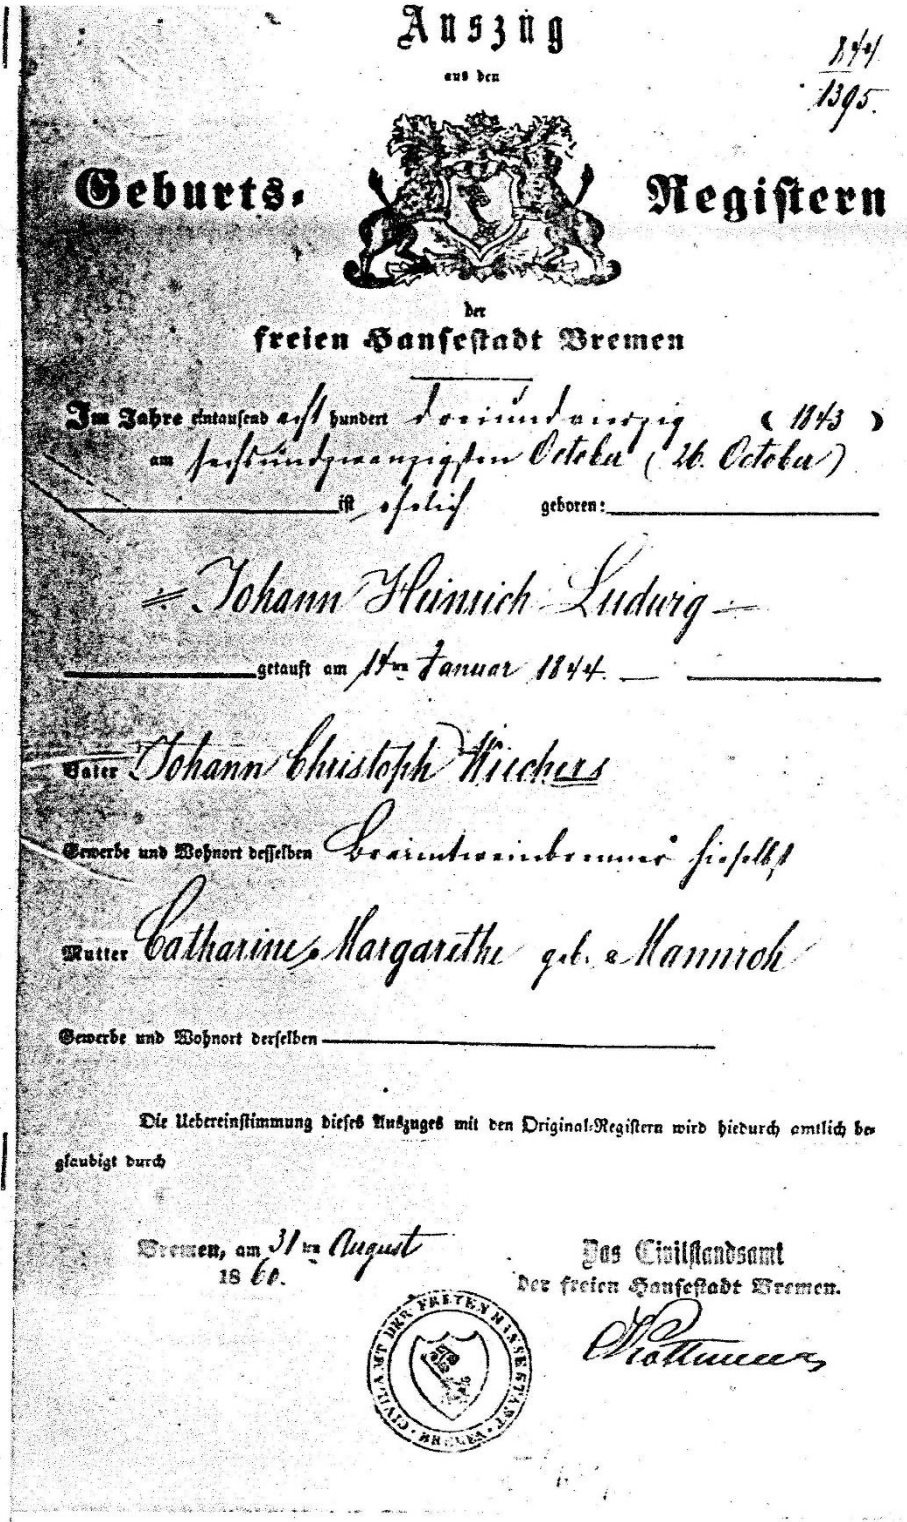 Auszug
aus den
844
1395.
Geburts-Registern
der
freien Hansestadt Bremen
Im Jahre eintausend acht hundert dreiundvierzig (1843)
am sechsundzwanzigsten October (26. October)
ist ehelich geboren:
Johann Heinrich Ludwig
getauft am 14ten Januar 1844.
Vater Johann Christoph Wiechers
Gewerbe und Wohnort desselben Branntweinbrenner hieselbst
Mutter Catharine Margarethe geb. Mannroh
Gewerbe und Wohnort derselben
Die Uebereinstimmung dieses Auszuges mit den Original-Registern wird hiedurch amtlich be-
glaubigt durch
Bremen, am 31ten August
1860.
Das Civilstandsamt
der freien Hansestadt Bremen.
CIVILAMT DER FREIEN HANSESTADT BREMEN